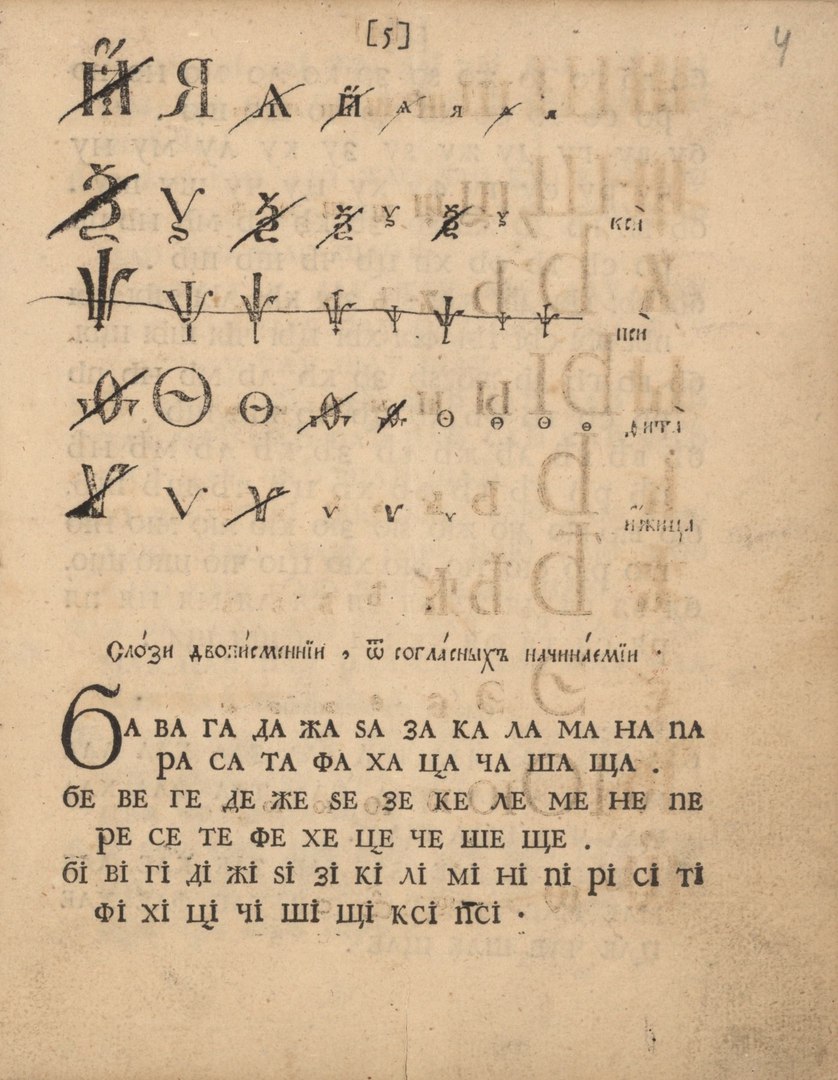 [5] 4
Я Ѧ ѧ я ѧ я
Ѯ Ѯ Ѯ ѯ ѯ ѯ ѯ ѯѝ
Ѱ Ѱ Ѱ ѱ ѱ ѱ ѱ ѱ псѝ
Ѳ Ѳ Ѳ ѳ ѳ ѳ ѳ ѳ ѳ ѳита̀
Ѵ Ѵ Ѵ ѵ ѵ ѵ и҆́жица
Сло́зи двопи́сменнїи , ѿ согла́сныхъ начина́емїи ·
ба ва га да жа ѕа за ка ла ма на па
ра са та фа ха ца ча ша ща .
бе ве ге де же ѕе зе ке ле ме не пе
ре се те фе хе це че ше ще .
бі ві гі ді жі ѕі зі кі лі мі ні пі рі сі ті
фі хі ці чі ші щі ксі псі .